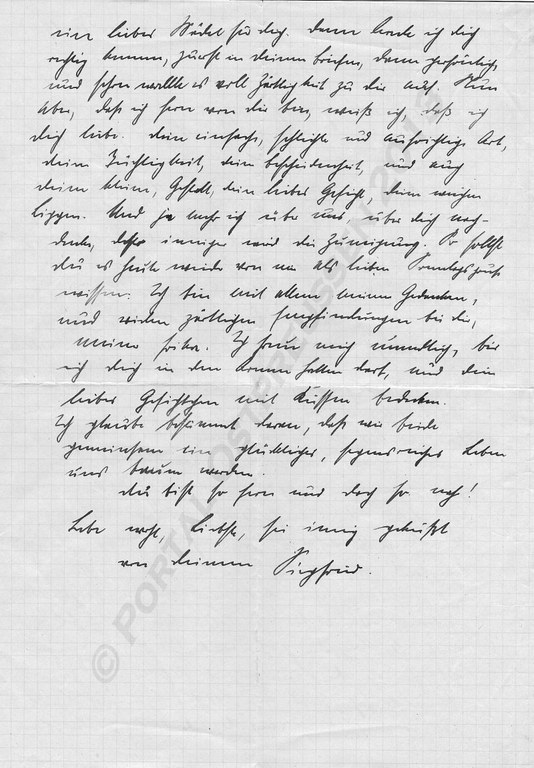 ein liebes Mädel für dich. Dann lernte ich dich
richtig kennen, zuerst in deinen Briefen, dann persönlich,
und schon wallte es voll Zärtlichkeit zu dir auf. Nun
aber, daß ich fern von dir bin, weiß ich, daß ich
dich liebe. Deine einfache, schlichte und aufrichtige Art,
deine Tüchtigkeit, deine Bescheidenheit, und auch
deine kleine Gestalt, dein liebes Gesicht, deine weichen
Lippen. Und je mehr ich über uns, über dich nach-
denke, desto inniger wird die Zuneigung. So sollst
du es heute wieder von mir als lieben Sonntagsgruß
wissen. Ich bin mit allen meinen Gedanken,
und vielen zärtlichen Empfindungen bei dir,
meine Erika. Ich freue mich unendlich, bis
ich dich in den Armen halten darf, und dein
liebes Gesichtchen mit Küssen bedecken.
Ich glaube bestimmt daran, daß wir beide
gemeinsam ein glückliches, segensreiches Leben
uns bauen werden.
Du bist so fern und doch so nah!
Lebe wohl, Liebste, sei innig geküßt
von deinem Siegfried.
© PORTAL OSTPREUSSEN 2018